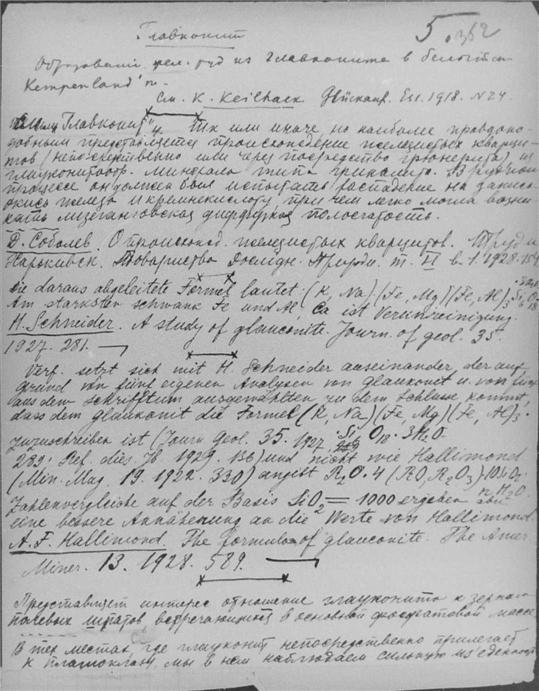 Главконит 5.362
Образование жел. руд из главконита в бельгийск.
Kempenland'е.
См. K. Keilhack Glückauf. Ess. 1918. N 24.
Так или иначе, но наиболее правдопо-
добным представляется происхождение железистых кварци-
тов (непосредственно или через посредство грюнерита) из
минерала типа гриналита. В рудном
процессе он должен был испытать распадение на закись-
окись железа и кремнекислоту, при чем легко могла возни-
кать лизеганговская диффузная полосчатость.
Д. Соболев. О происхожд. железистых кварцитов. Труди
Харькивск. Товариство Дослідн. Природи. т. II в. 1. 1928.
Die daraus abgeleitete Formel lautet: (K, Na) (Fe, Mg) (Fe, Al)3
Am stärksten schwank Fe und Al, Ca ist Verunreinigung.
H. Schneider. A study of glauconite. Journ. of geol. 35.
1927. 281.
Verf. setzt sich mit H. Schneider auseinander, der auf
Grund von fünf eigenen Analysen von Glaukonit u. von fünf
aus dem Schrifttum ausgewählten zu dem Schlusse kommt,
dass dem glaukonit die Formel (K, Na) (Fe, Mg) (Fe, Al)3
Si6 O18 · 3H2O
zuzuschreiben ist (Journ. Geol. 35. 1927,
Ref. dies. Jb. 1929. 156) und nicht wie Hallimond
(Min. Mag. 19. 1922. 330) angibt R2O · 4 (RO, R2O3) · 10SiO2
n H2O.
Zahlenvergleiche auf der Basis SiO2 = 1000 ergeben
eine bessere Annäherung an die Werte von Hallimond.
A. F. Hallimond. The formula of glauconite. The Amer.
Miner. 13. 1928. 589.
Представляет интерес отношение глауконита к зернам
полевых шпатов встречающихся в основной фосфатовой массе.
В тех местах, где глауконит непосредственно прилегает
к плагиоклазу, мы в нем наблюдаем сильную из'еденность